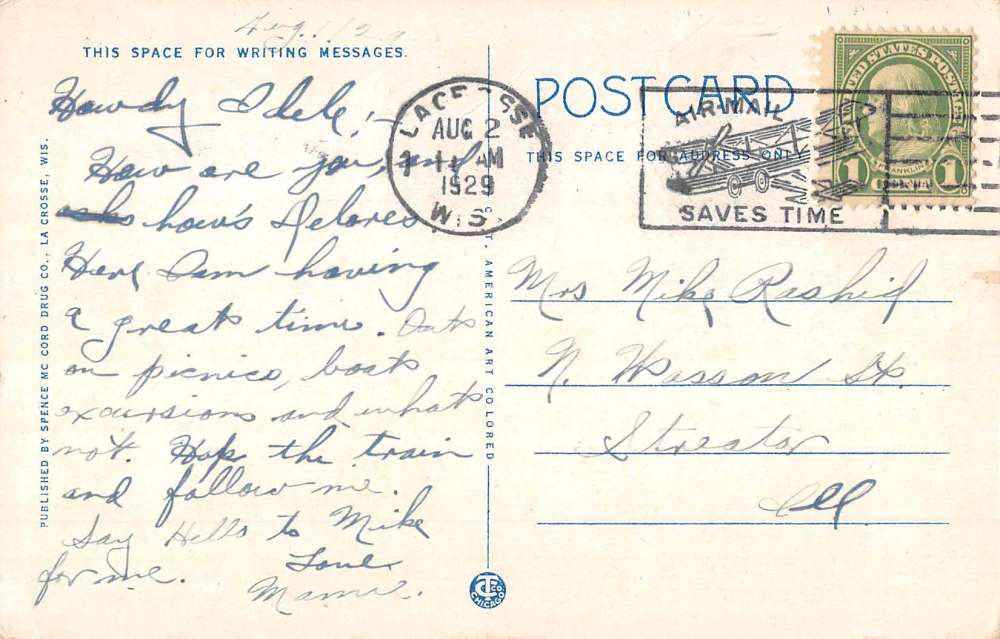 Aug. 1, 29
THIS SPACE FOR WRITING MESSAGES.
Howdy Idele, -
How are you, and
how's Delores
Here I am having
a great time. Out
on picnics, boat
excursions and what
not. Hop the train
and follow me.
Say Hello to Mike
for me. Love
Mamie.
PUBLISHED BY SPENCE MC CORD DRUG CO., LA CROSSE, WIS.
C. T. AMERICAN ART COLORED
CTCO
CHICAGO
POST CARD
THIS SPACE FOR ADDRESS ONLY
LA CROSSE
AUG 2
11 AM
1929
WIS.
AIR MAIL
SAVES TIME
UNITED STATES POSTAGE
FRANKLIN
1 1
Mrs Mike Rashid
N. Wasson St.
Streator
Ill